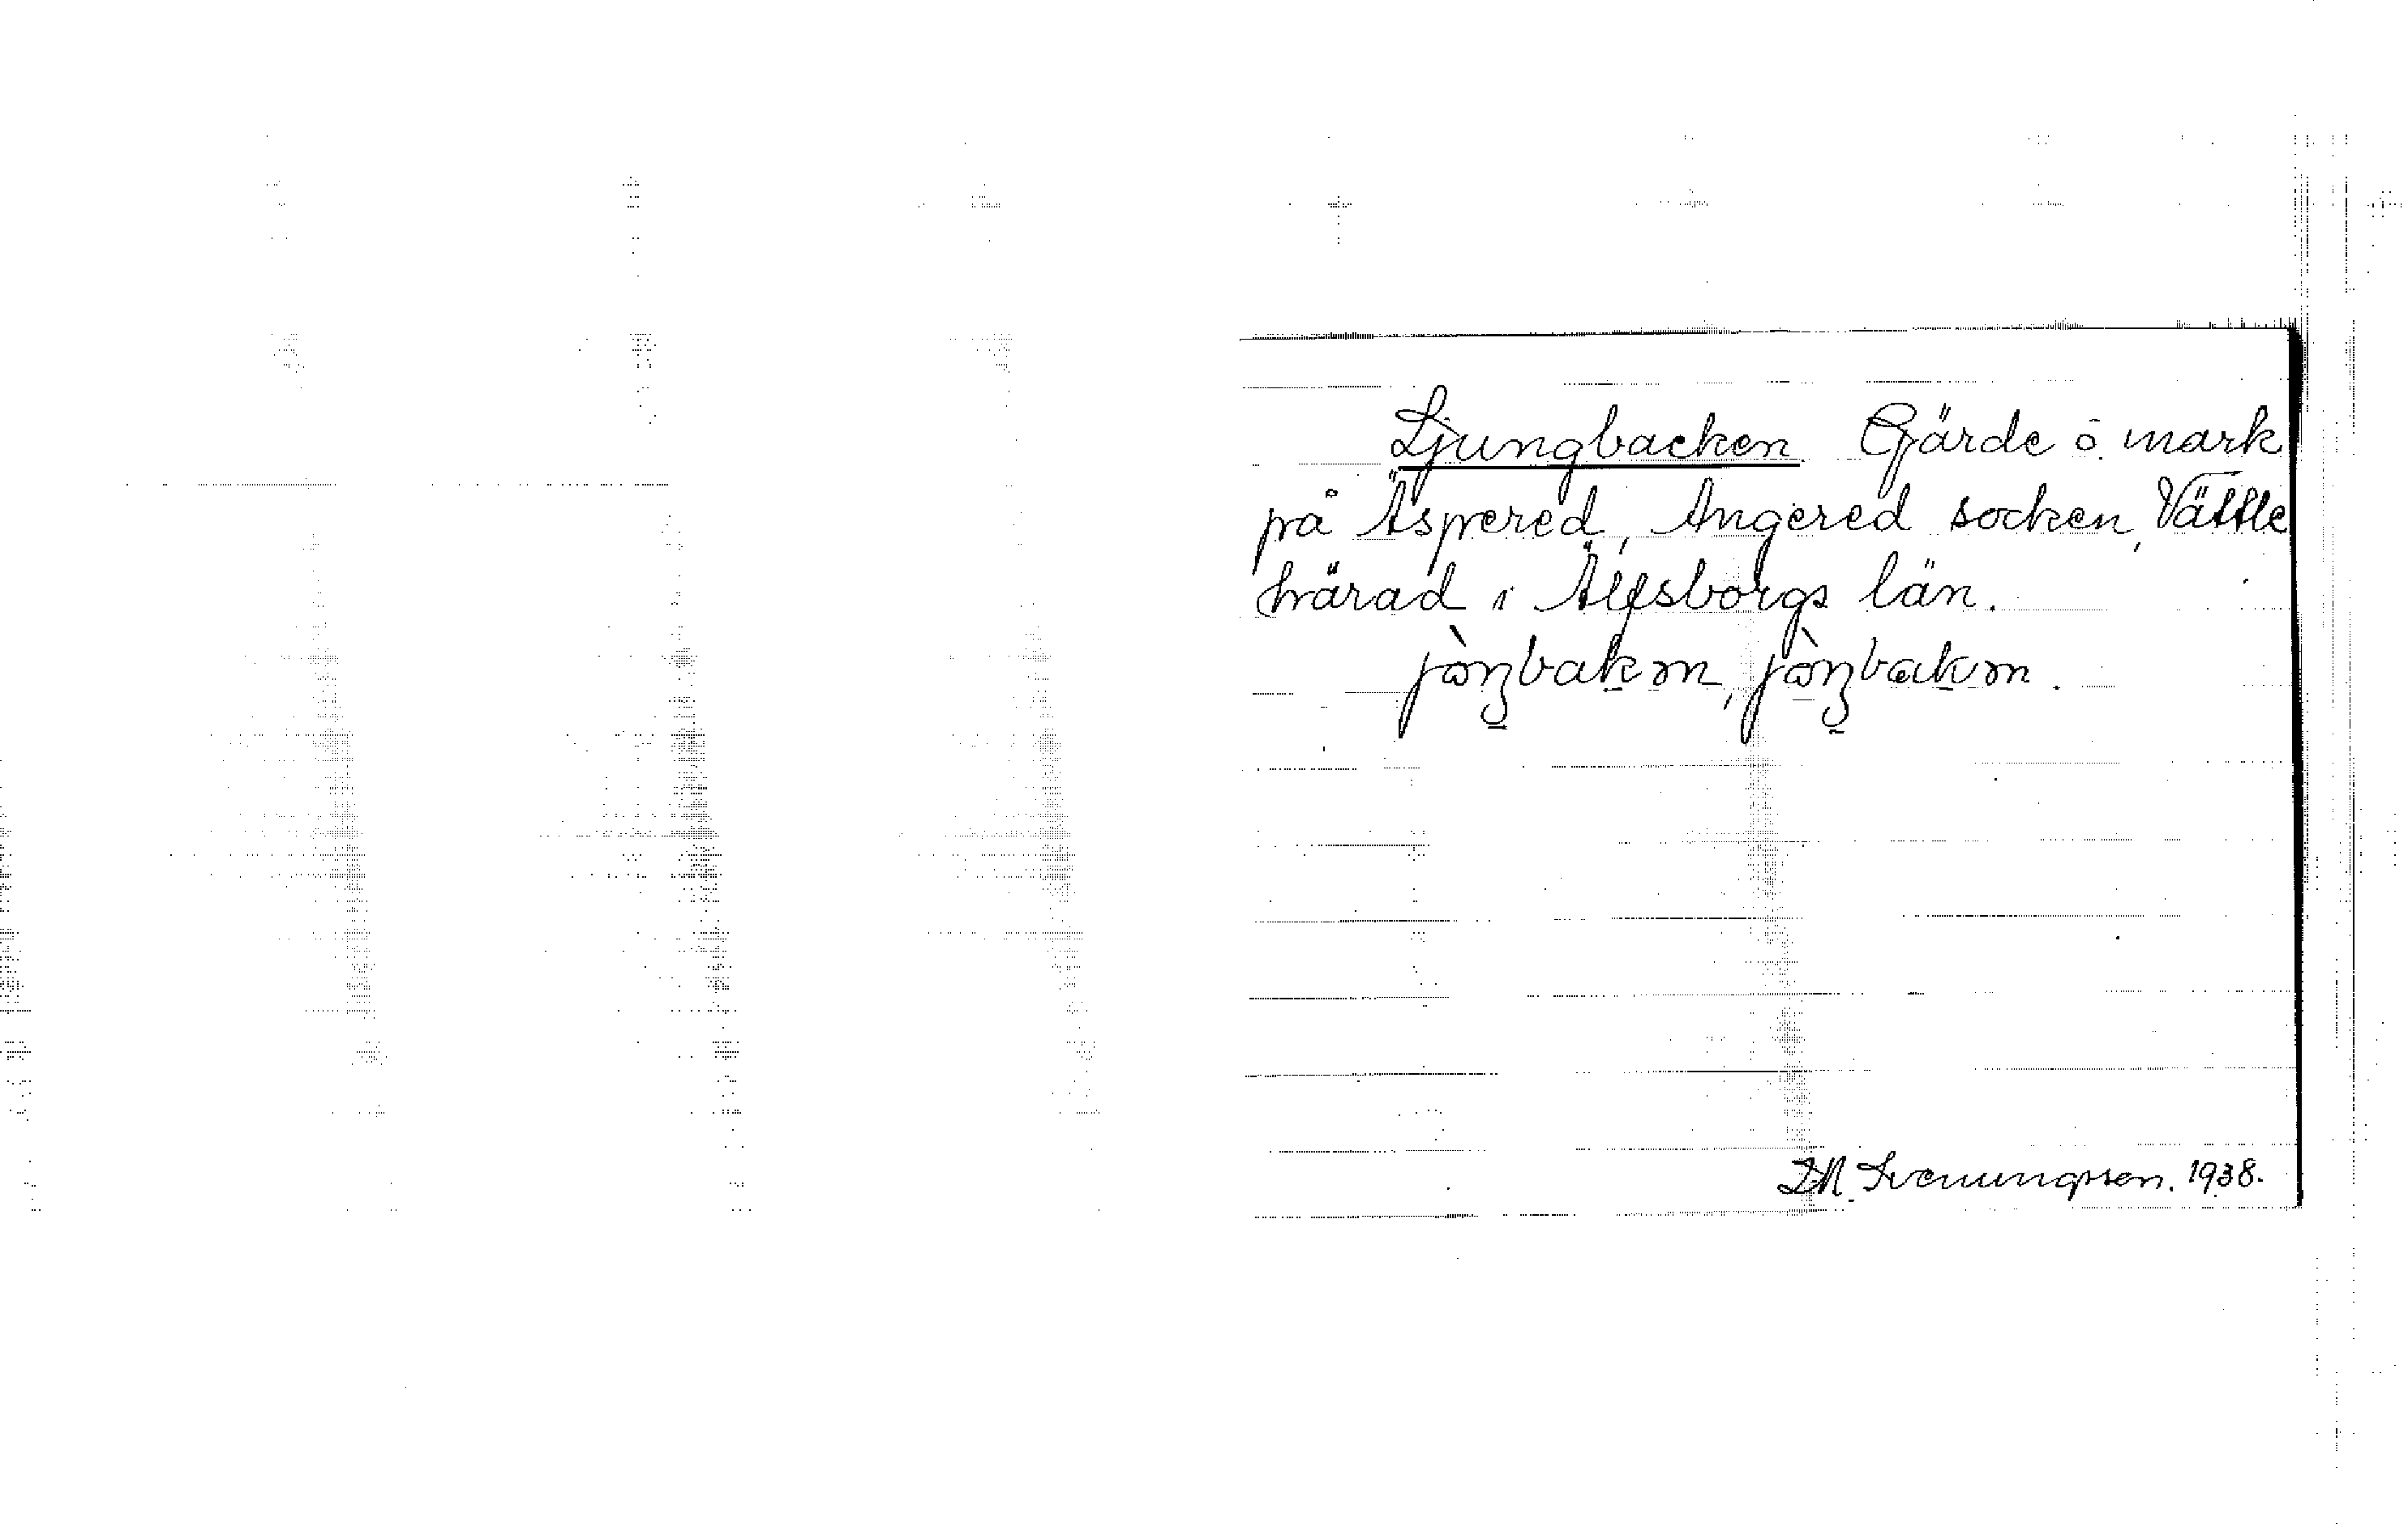 Ljungbacken. Gärde o. mark
på Äspered, Angered socken, Vättle
härad i Älfsborgs län.
jòŋbakən, jòŋbakən.
D.N. Svenungsson. 1938.